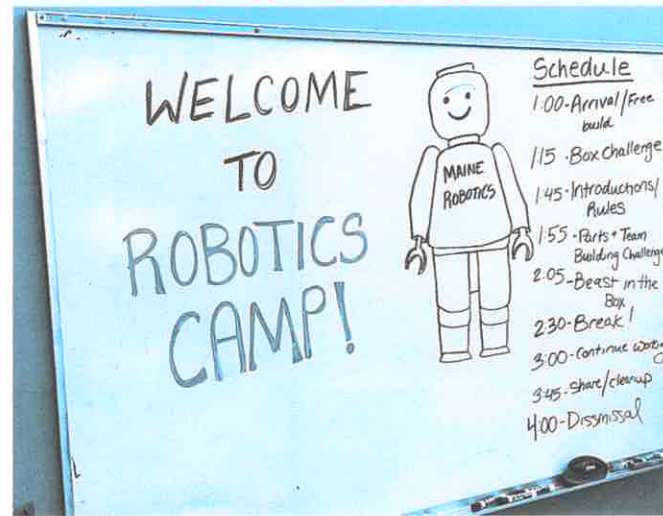 WELCOME
TO
ROBOTICS
CAMP!
MAINE
ROBOTICS
Schedule
1:00-Arrival/Free
build
1:15 -Box Challenge
1:45-Introductions/
Rules
1:55-Parts + Team
Building Challenge
2:05-Beast in the
Box
2:30-Break!
3:00-Continue working
3:45-Share/cleanup
4:00-Dissmissal